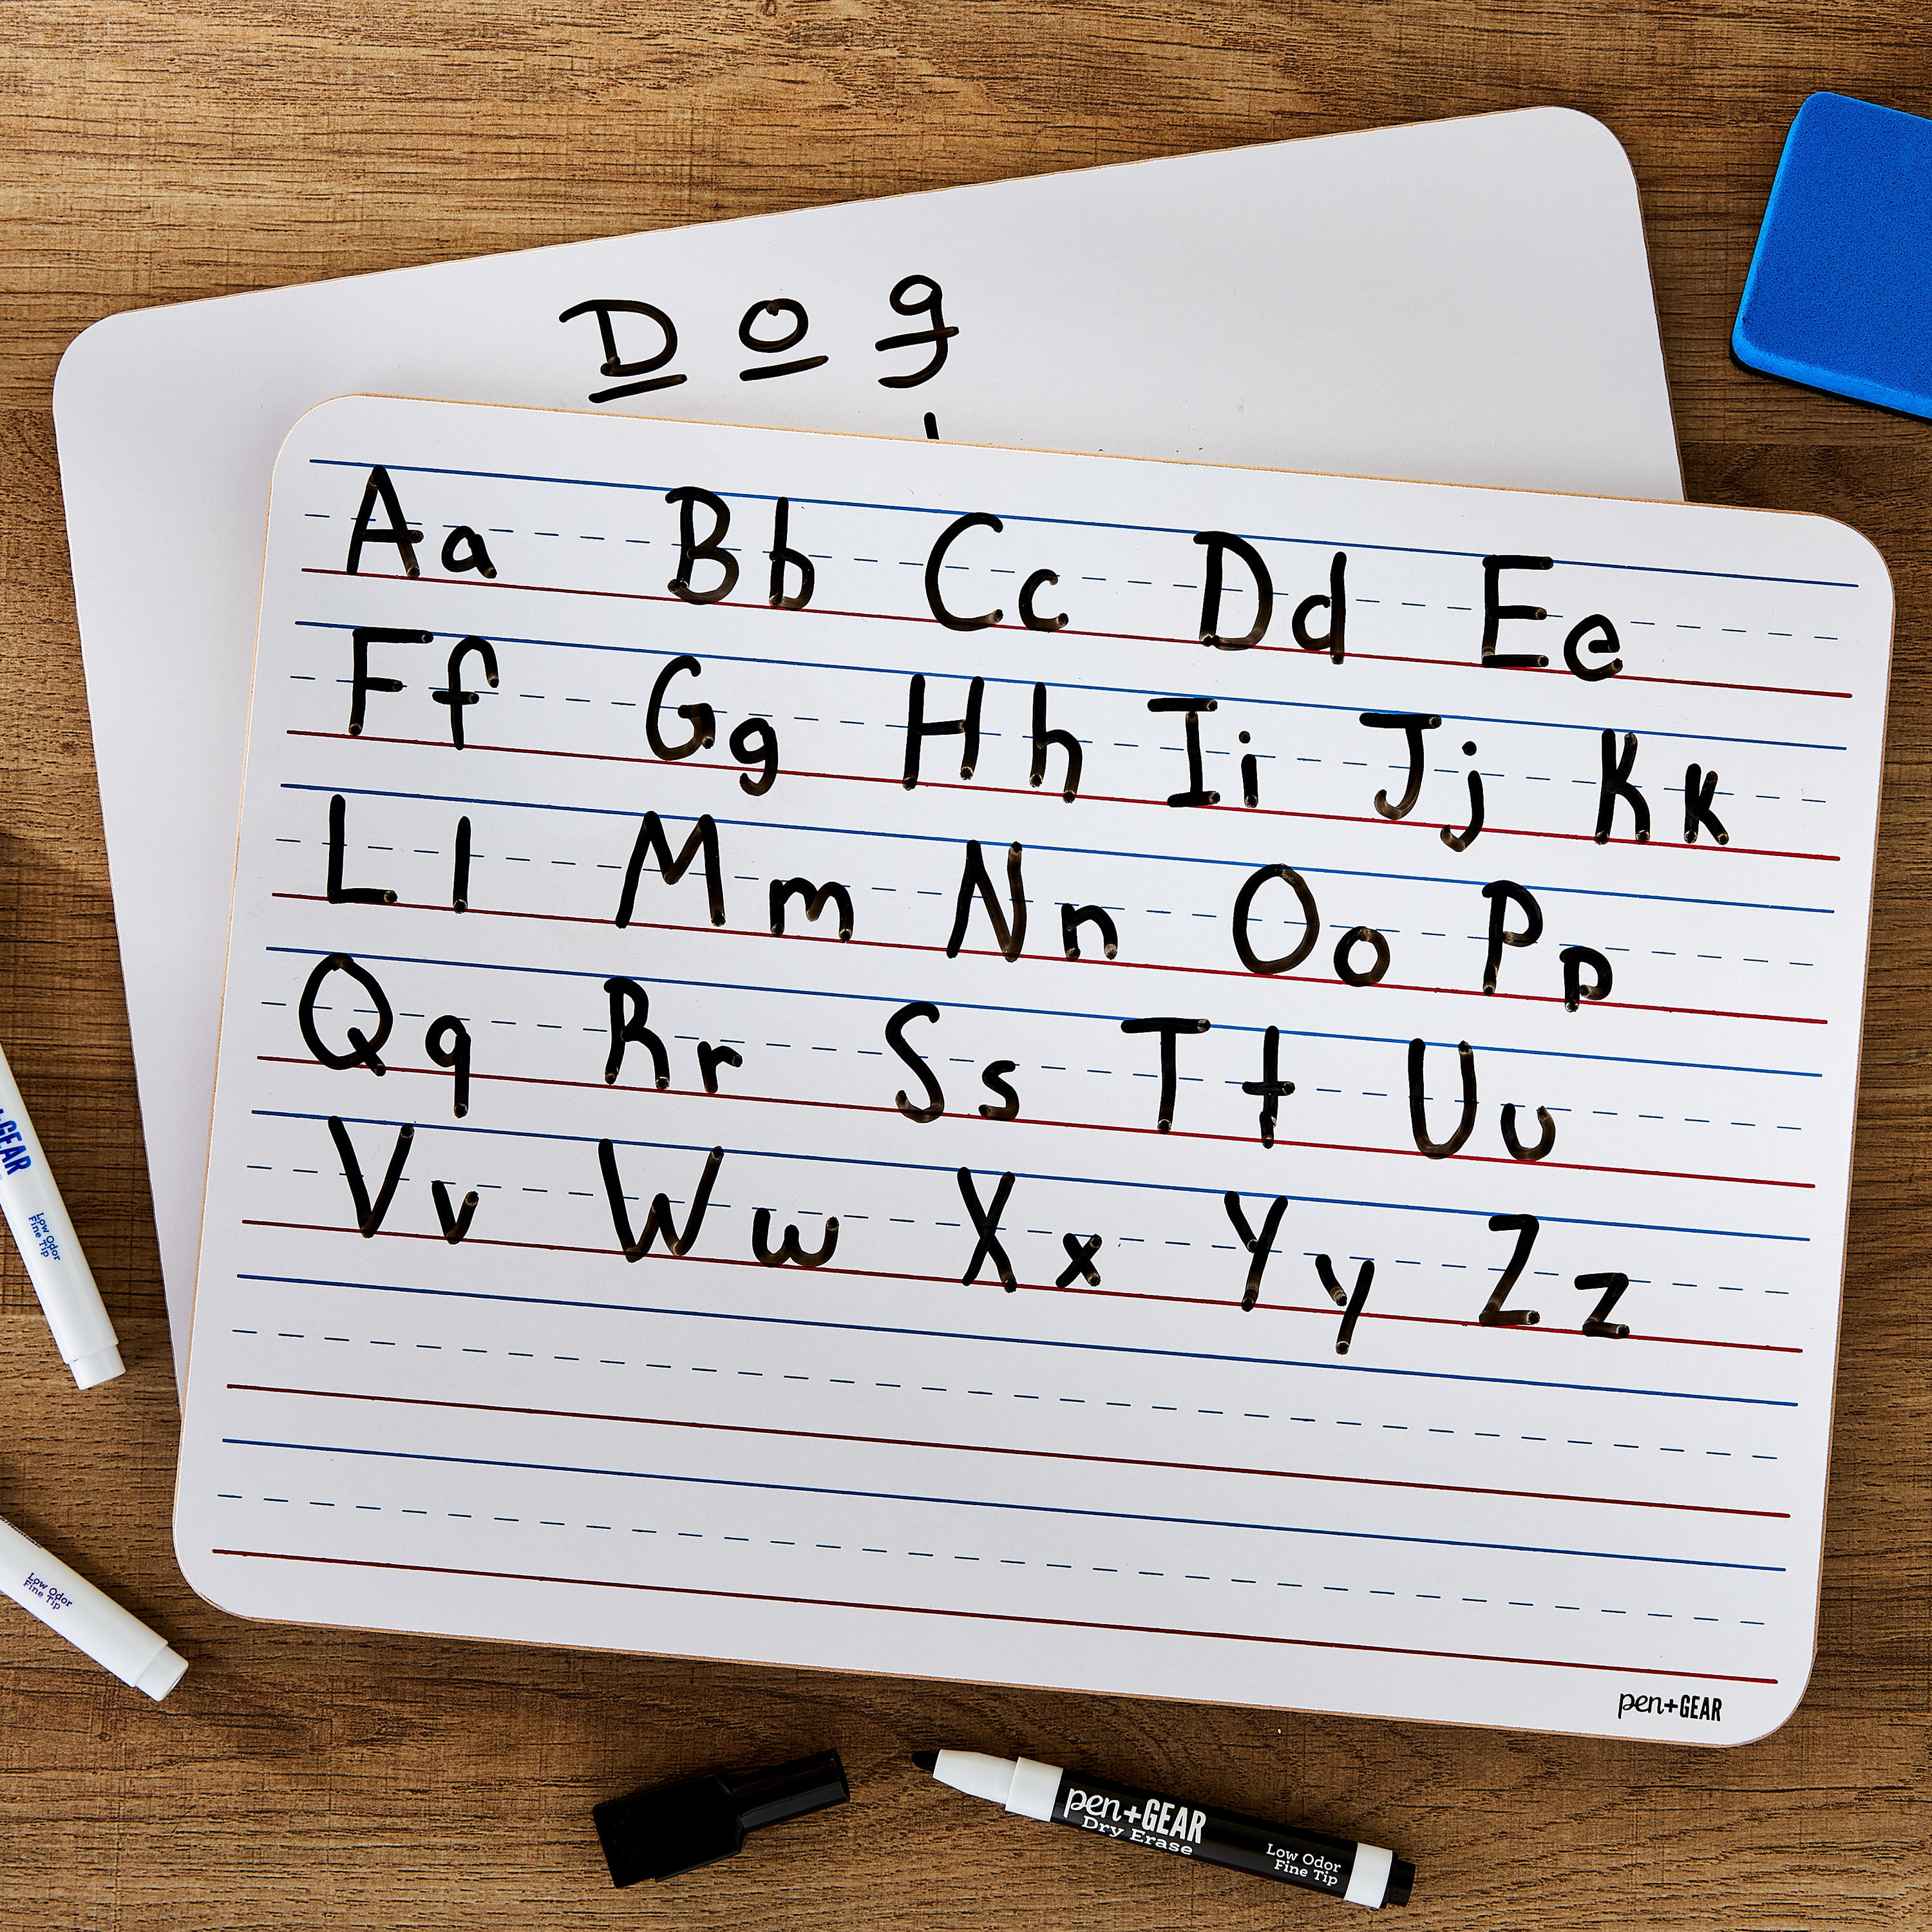 Dog
Aa Bb Cc Dd Ee
Ff Gg Hh Ii Jj Kk
Ll Mm Nn Oo Pp
Qq Rr Ss Tt Uu
Vv Ww Xx Yy Zz
pen+GEAR
+GEAR
Low Odor
Fine Tip
Low Odor
Fine Tip
pen+GEAR
Dry Erase
Low Odor
Fine Tip